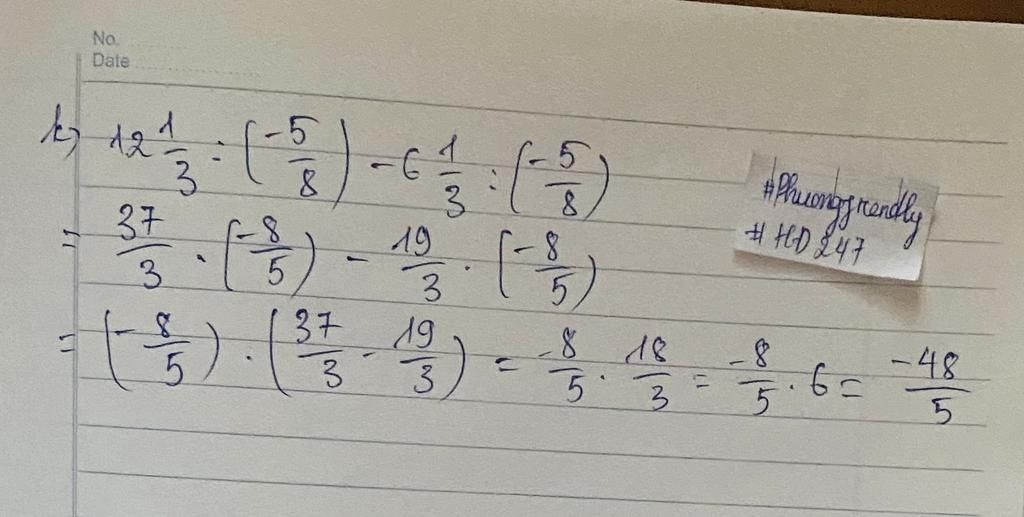 No.
Date
k) 12 1/3 : (-5/8) - 6 1/3 : (-5/8)
= 37/3 . (-8/5) - 19/3 . (-8/5)
= (-8/5) . (37/3 - 19/3) = -8/5 . 18/3 = -8/5 . 6 = -48/5
#Phuongfrendly
#HD247